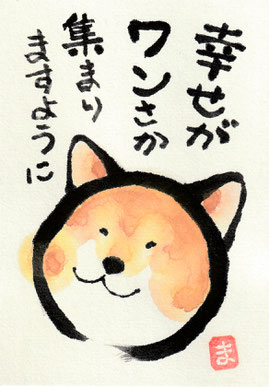 幸せが
ワンさか
集まり
ますように
ま